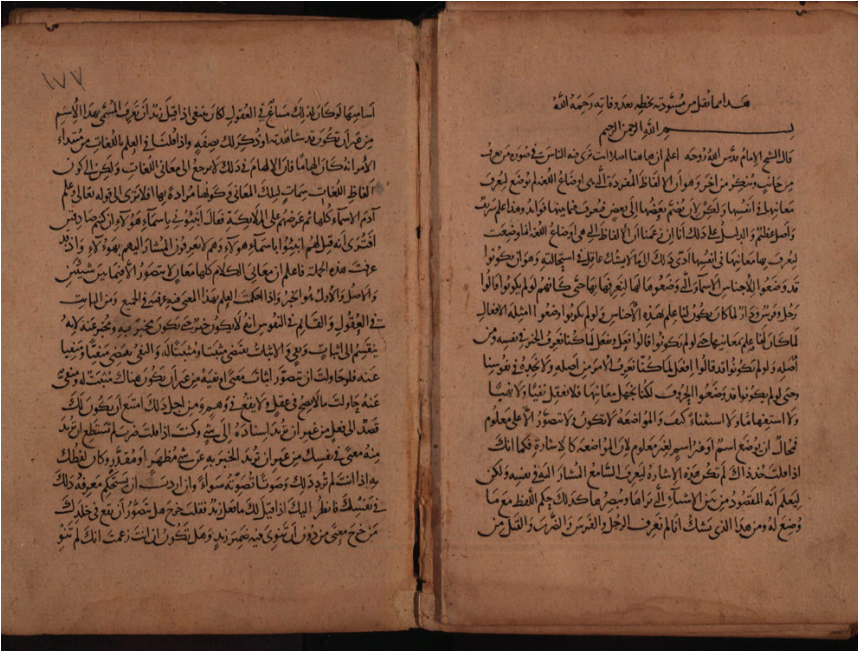 هذا مما نقل من مسودته بخطه بعد وفاته رحمه الله
بسم الله الرحمن الرحيم
قال الشيخ الامام قدس الله روحه اعلم ان هاهنا اصلا انت ترى فيه الناس في صورة من يعرف
من جانب وينكر من آخر وهو ان الالفاظ المفردة التي هي اوضاع اللغة لم توضع ليعرف
معانيها في انفسها ولكن لان يضم بعضها الى بعض فيعرف فيما بينها فوائد وهذا علم شريف
واصل عظيم والدليل على ذلك انا ان زعمنا ان الالفاظ التي هي اوضاع اللغة انما وضعت
ليعرف بها معانيها في انفسها لادى ذلك الى ما لا يشك عاقل في استحالته وهو ان يكونوا
قد وضعوا للاجناس الاسماء التي وضعوها لها لتعرفها بها حتى كانهم لو لم يكونوا قالوا
رجل وفرس ودار لما كان يكون لنا علم بهذه الاجناس ولو لم يكونوا وضعوا امثلة الافعال
لما كان لنا علم بمعانيها حتى لو لم يكونوا قالوا فعل ويفعل لما كنا نعرف الخبر في نفسه ومن
اصله ولو لم يكونوا قد قالوا افعل لما كنا نعرف الامر من اصله ولا نجده في نفوسنا
وحتى لو لم يكونوا قد وضعوا الحروف لكنا نجهل معانيها فلا نعقل نفيا ولا نهيا
ولا استفهاما ولا استثناء كيف والمواضعة لا تكون ولا تتصور الا على معلوم
فمحال ان يوضع اسم او غير اسم لغير معلوم لان المواضعة كالاشارة فكما انك
اذا قلت خذ ذاك لم تكن هذه الاشارة ليعرف السامع المشار اليه في نفسه ولكن
ليعلم انه المقصود من بين الاشياء التي تراها وتبصرها كذلك حكم اللفظ مع ما
وضع له ومن هذا الذي يشك انا لم نعرف الرجل والفرس والضرب والقتل من
١٧٧
اساميها لو كان لذلك مساغ في العقول لكان ينبغي اذا قيل زيد ان تعرف المسمى بهذا الاسم
من غير ان تكون قد شاهدته او ذكر لك بصفة واذا قلنا في العلم باللغات من مبتداء
الامر انه كان الهاما فان الالهام في ذلك لا يرجع الى معاني اللغات ولكن الى كون
الفاظ اللغات سمات لتلك المعاني وكونها مرادة بها افلا ترى الى قوله تعالى وعلم
آدم الاسماء كلها ثم عرضهم على الملائكة فقال انبئوني باسماء هولاء ان كنتم صادقين
افترى انه قيل لهم انبئوا باسماء هولاء وهم لا يعرفون المشار اليهم بهولاء واذ قد
عرفت هذه الجملة فاعلم ان معاني الكلام كلها معان لا يتصور الا فيما بين شيئين
والاصل والاول هو الخبر واذا احكمت العلم بهذا المعنى فيه عرفته في الجميع ومن الثابت
في العقول والقائم في النفوس انه لا يكون خبر حتى يكون مخبر به ومخبر عنه لانه
ينقسم الى اثبات ونفي والاثبات يقتضي مثبتا ومثبتا له والنفي يقتضي منفيا ومنفيا
عنه فلو حاولت ان تتصور اثبات معنى او نفيه من غير ان يكون هناك مثبت له ومنفي
عنه حاولت ما لا يصح في عقل ولا يقع في وهم ومن اجل ذلك امتنع ان يكون لك
قصد الى فعل من غير ان تريد اسناده الى شي وكنت اذا قلت ضرب لم تستطع ان تريد
منه معنى في نفسك من غير ان تريد الخبر به عن شي مظهر او مقدر وكان لفظك
به اذا انت لم ترد ذلك وصوتا تصوته سواء وان اردت ان يستحكم معرفة ذلك
في نفسك فانظر اليك اذا قيل لك ما فعل زيد فقلت خرج هل يتصور ان يقع في خلدك
من خرج معنى من دون ان تنوي فيه ضمير زيد وهل تكون ان انت زعمت انك لم تنو